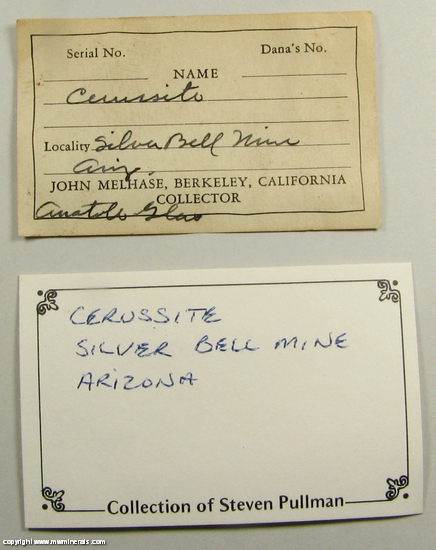 Serial No. Dana's No.
NAME
Cerussite
Locality Silver Bell Mine
Ariz.
JOHN MELHASE, BERKELEY, CALIFORNIA
COLLECTOR
CERUSSITE
SILVER BELL MINE
ARIZONA
Collection of Steven Pullman
copyright www.mwminerals.com